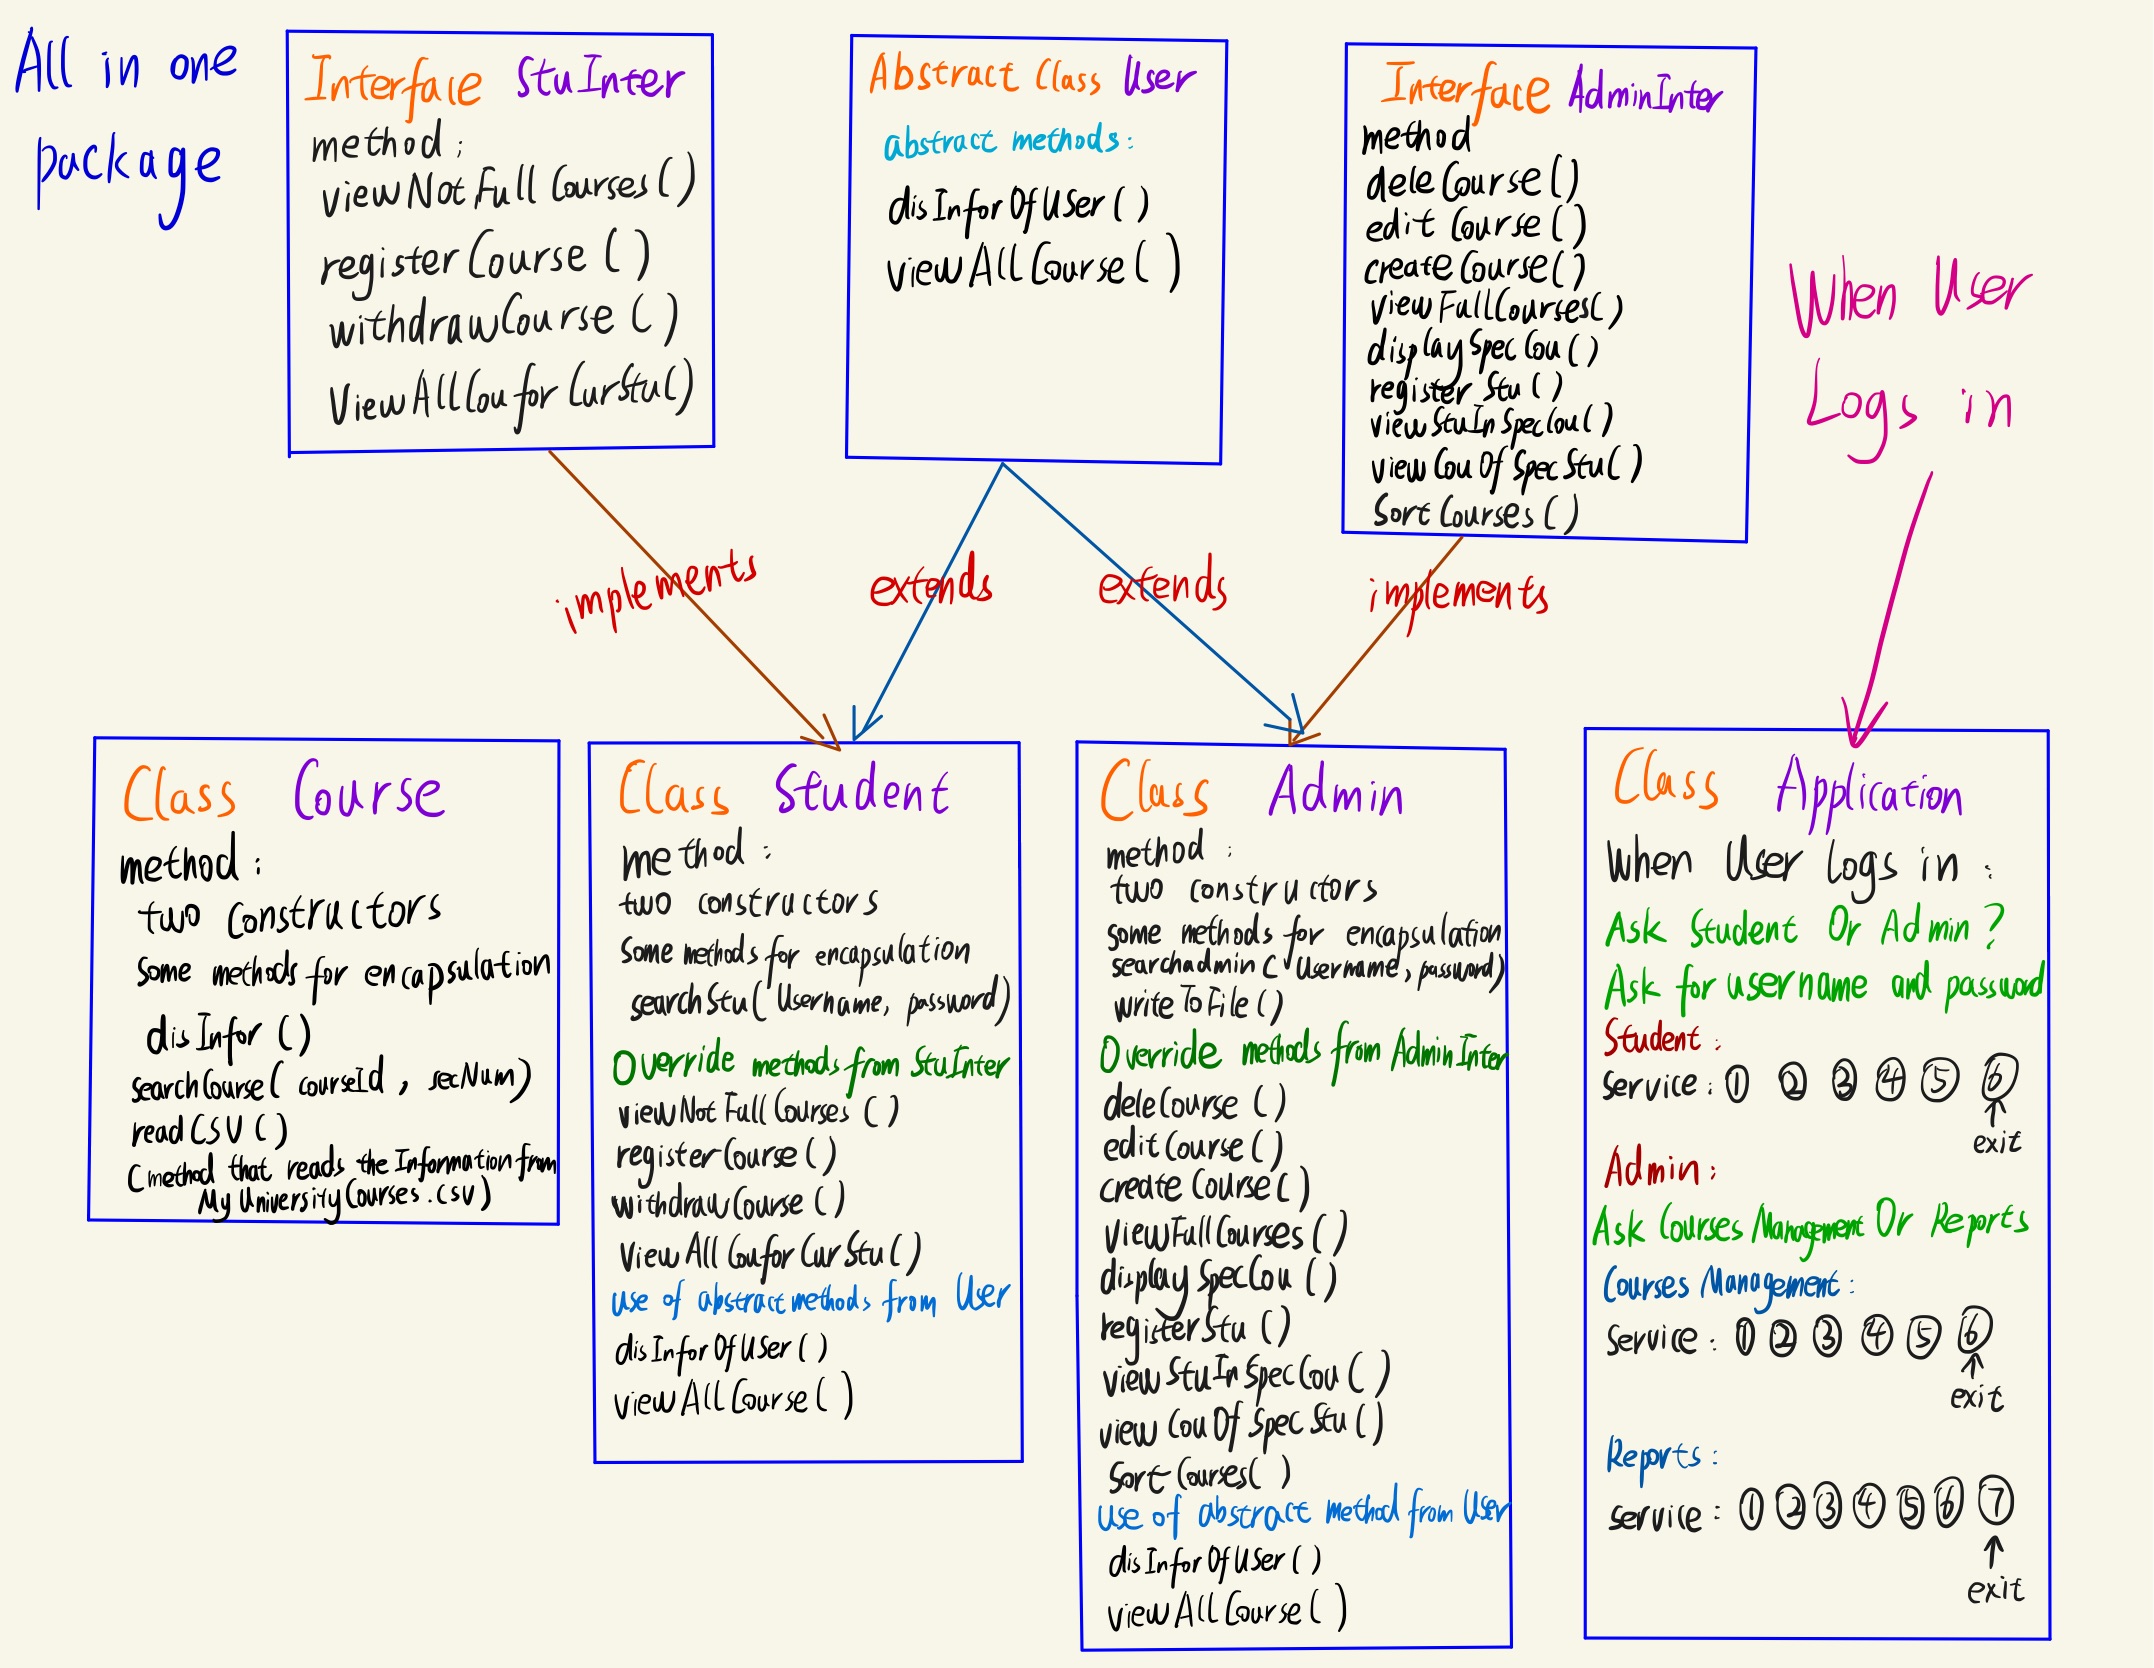 All in one
package
Interface StuInter
method:
viewNotFullCourses()
registerCourse()
withdrawCourse()
ViewAllCouforCurStu()
Abstract Class User
abstract methods:
disInforOfUser()
viewAllCourse()
Interface AdminInter
method
deleCourse()
editCourse()
createCourse()
viewFullCourses()
displaySpecCou()
registerStu()
viewStuInSpecCou()
viewCouOfSpecStu()
SortCourses()
When User
Logs in
implements
extends
extends
implements
Class Course
method:
two constructors
some methods for encapsulation
disInfor()
searchCourse(courseId, secNum)
readCSV()
(method that reads the Information from
MyUniversityCourses.csv)
Class Student
method:
two constructors
some methods for encapsulation
searchStu(Username, password)
Override methods from StuInter
viewNotFullCourses()
registerCourse()
withdrawCourse()
ViewAllCouforCurStu()
use of abstract methods from User
disInforOfUser()
viewAllCourse()
Class Admin
method:
two constructors
some methods for encapsulation
searchadmin(Username, password)
writeToFile()
Override methods from AdminInter
deleCourse()
editCourse()
createCourse()
ViewFullCourses()
displaySpecCou()
registerStu()
viewStuInSpecCou()
viewCouOfSpecStu()
SortCourses()
use of abstract method from User
disInforOfUser()
viewAllCourse()
Class Application
When User Logs in:
Ask Student Or Admin?
Ask for username and password
Student:
Service: ① ② ③ ④ ⑤ ⑥
↑
exit
Admin:
Ask Courses Management Or Reports
Courses Management:
Service: ① ② ③ ④ ⑤ ⑥
↑
exit
Reports:
service: ① ② ③ ④ ⑤ ⑥ ⑦
↑
exit